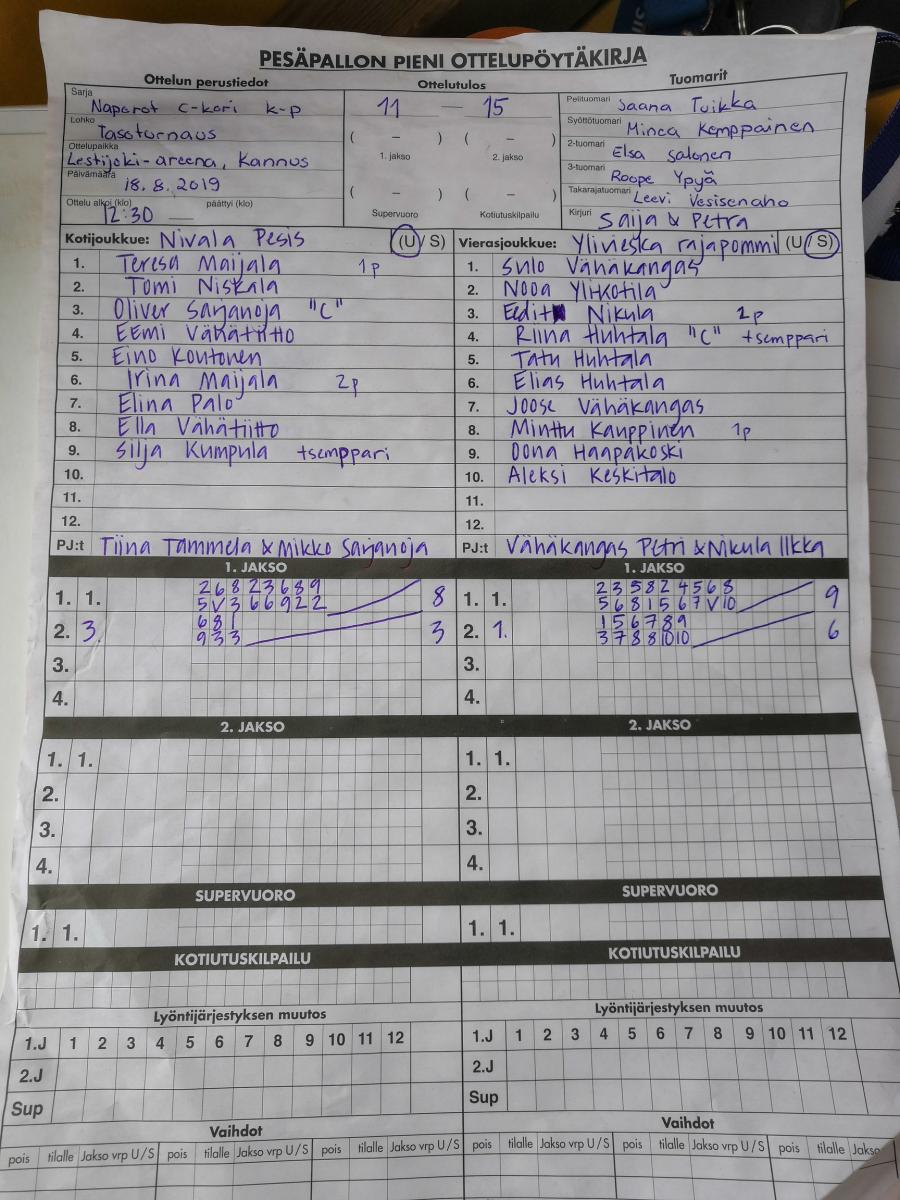 PESÄPALLON PIENI OTTELUPÖYTÄKIRJA
Ottelun perustiedot
Sarja Naperot C-kori k-p
Lohko Tasoturnaus
Ottelupaikka Lestijoki-areena, Kannus
Päivämäärä 18.8.2019
Ottelu alkoi (klo) 12:30 päättyi (klo)
Ottelutulos
11 — 15
( – ) ( – )
1. jakso 2. jakso
( – ) ( – )
Supervuoro Kotiutuskilpailu
Tuomarit
Pelituomari Saana Tuikka
Syöttötuomari Minea Kemppainen
2-tuomari Elsa Salonen
3-tuomari Roope Ypyä
Takarajatuomari Leevi Vesisenaho
Kirjuri Saija & Petra
Kotijoukkue: Nivala Pesis (U/S)
1. Teresa Maijala 1p
2. Tomi Niskala
3. Oliver Sarjanoja "C"
4. Eemi Vähätiitto
5. Eino Kontonen
6. Irina Maijala 2p
7. Elina Palo
8. Ella Vähätiitto
9. Silja Kumpula +semppari
10.
11.
12.
PJ:t Tiina Tammela & Mikko Sarjanoja
Vierasjoukkue: Ylivieska rajapommi (U/S)
1. Sulo Vähäkangas
2. Nooa Ylikotila
3. Eedit Nikula 2p
4. Riina Huhtala "C" +semppari
5. Tatu Huhtala
6. Elias Huhtala
7. Joose Vähäkangas
8. Minttu Kauppinen 1p
9. Oona Haapakoski
10. Aleksi Keskitalo
11.
12.
PJ:t Vähäkangas Petri & Nikula Ilkka
1. JAKSO
1. 1. 2 6 8 2 3 6 8 9
5 V 3 6 6 9 2 2 8
2. 3. 6 8 1
9 3 3 3
3.
4.
1. JAKSO
1. 1. 2 3 5 8 2 4 5 6 8
5 6 8 1 5 6 7 V 10 9
2. 1. 1 5 6 7 8 9
3 7 8 8 10 10 6
3.
4.
2. JAKSO
1. 1.
2.
3.
4.
2. JAKSO
1. 1.
2.
3.
4.
SUPERVUORO
1. 1.
SUPERVUORO
1. 1.
KOTIUTUSKILPAILU
KOTIUTUSKILPAILU
Lyöntijärjestyksen muutos
1.J 1 2 3 4 5 6 7 8 9 10 11 12
2.J
Sup
Lyöntijärjestyksen muutos
1.J 1 2 3 4 5 6 7 8 9 10 11 12
2.J
Sup
Vaihdot
pois tilalle Jakso vrp U/S pois tilalle Jakso vrp U/S pois tilalle Jakso vrp U/S
Vaihdot
pois tilalle Jakso vrp U/S pois tilalle Jakso vrp U/S pois tilalle Jakso